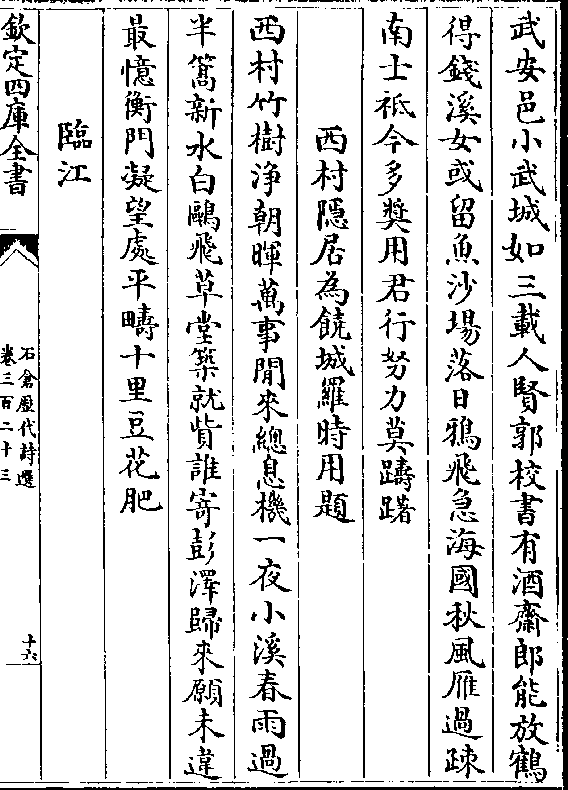 武安邑小武城如三載人賢郭校書有酒齋郎能放鶴
得錢溪女或留魚沙場落日鴉飛急海國秋風雁過踈
南士祗今多奬用君行努力莫躊躇
西村隱居為饒城羅時用題
西村竹樹浄朝暉萬事閒來總息機一夜小溪春雨過
半篙新水白鷗飛草堂築就貲誰寄彭澤歸來願未違
最憶衡門凝望處平疇十里豆花肥
臨江
欽定四庫全書
石倉歷代詩選
卷三百二十三
十六